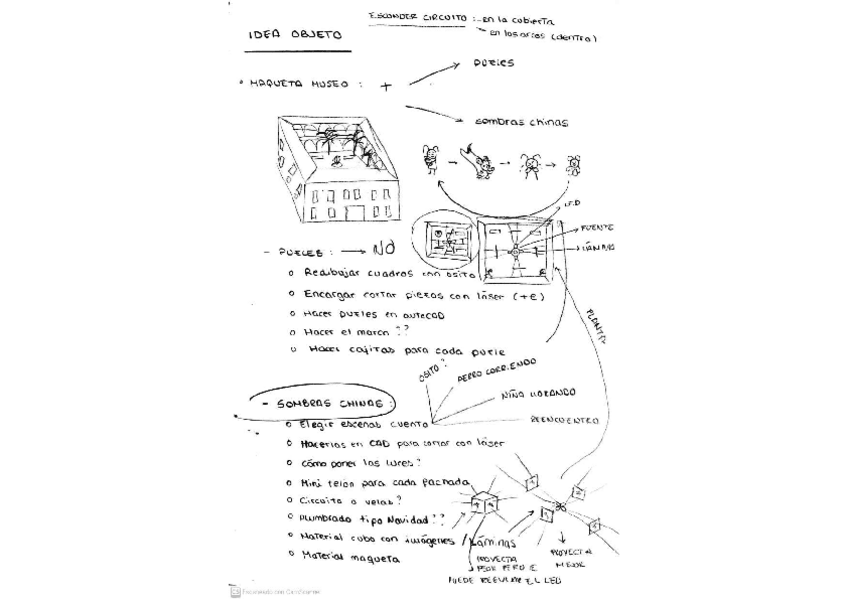 ESCONDER CIRCUITO : - en la cubierta
- en los arcos (dentro)
IDEA OBJETO
• MAQUETA MUSEO : +
PUZLES
sombras chinas
LED
FUENTE
LÁMINAS
- PUZLES : → NO
o Redibujar cuadros con osito
o Encargar cortar piezas con láser (+€)
o Hacer puzles en autoCAD
o Hacer el marco ??
o Hacer cajitas para cada puzle
PLANTA
OSITO?
PERRO CORRIENDO
NIÑA LLORANDO
REENCUENTRO
- SOMBRAS CHINAS :
o Elegir escenas cuento
o Hacerlas en CAD para cortar con láser
o cómo poner las luces?
o Mini telón para cada fachada
o Circuito o velas?
o Alumbrado tipo Navidad??
o Material cubo con imágenes / Láminas
o Material maqueta
PROYECTA
PEOR PERO SE
PUEDE REGULAR EL LED
PROYECTA
MEJOR
CS Escaneado con CamScanner